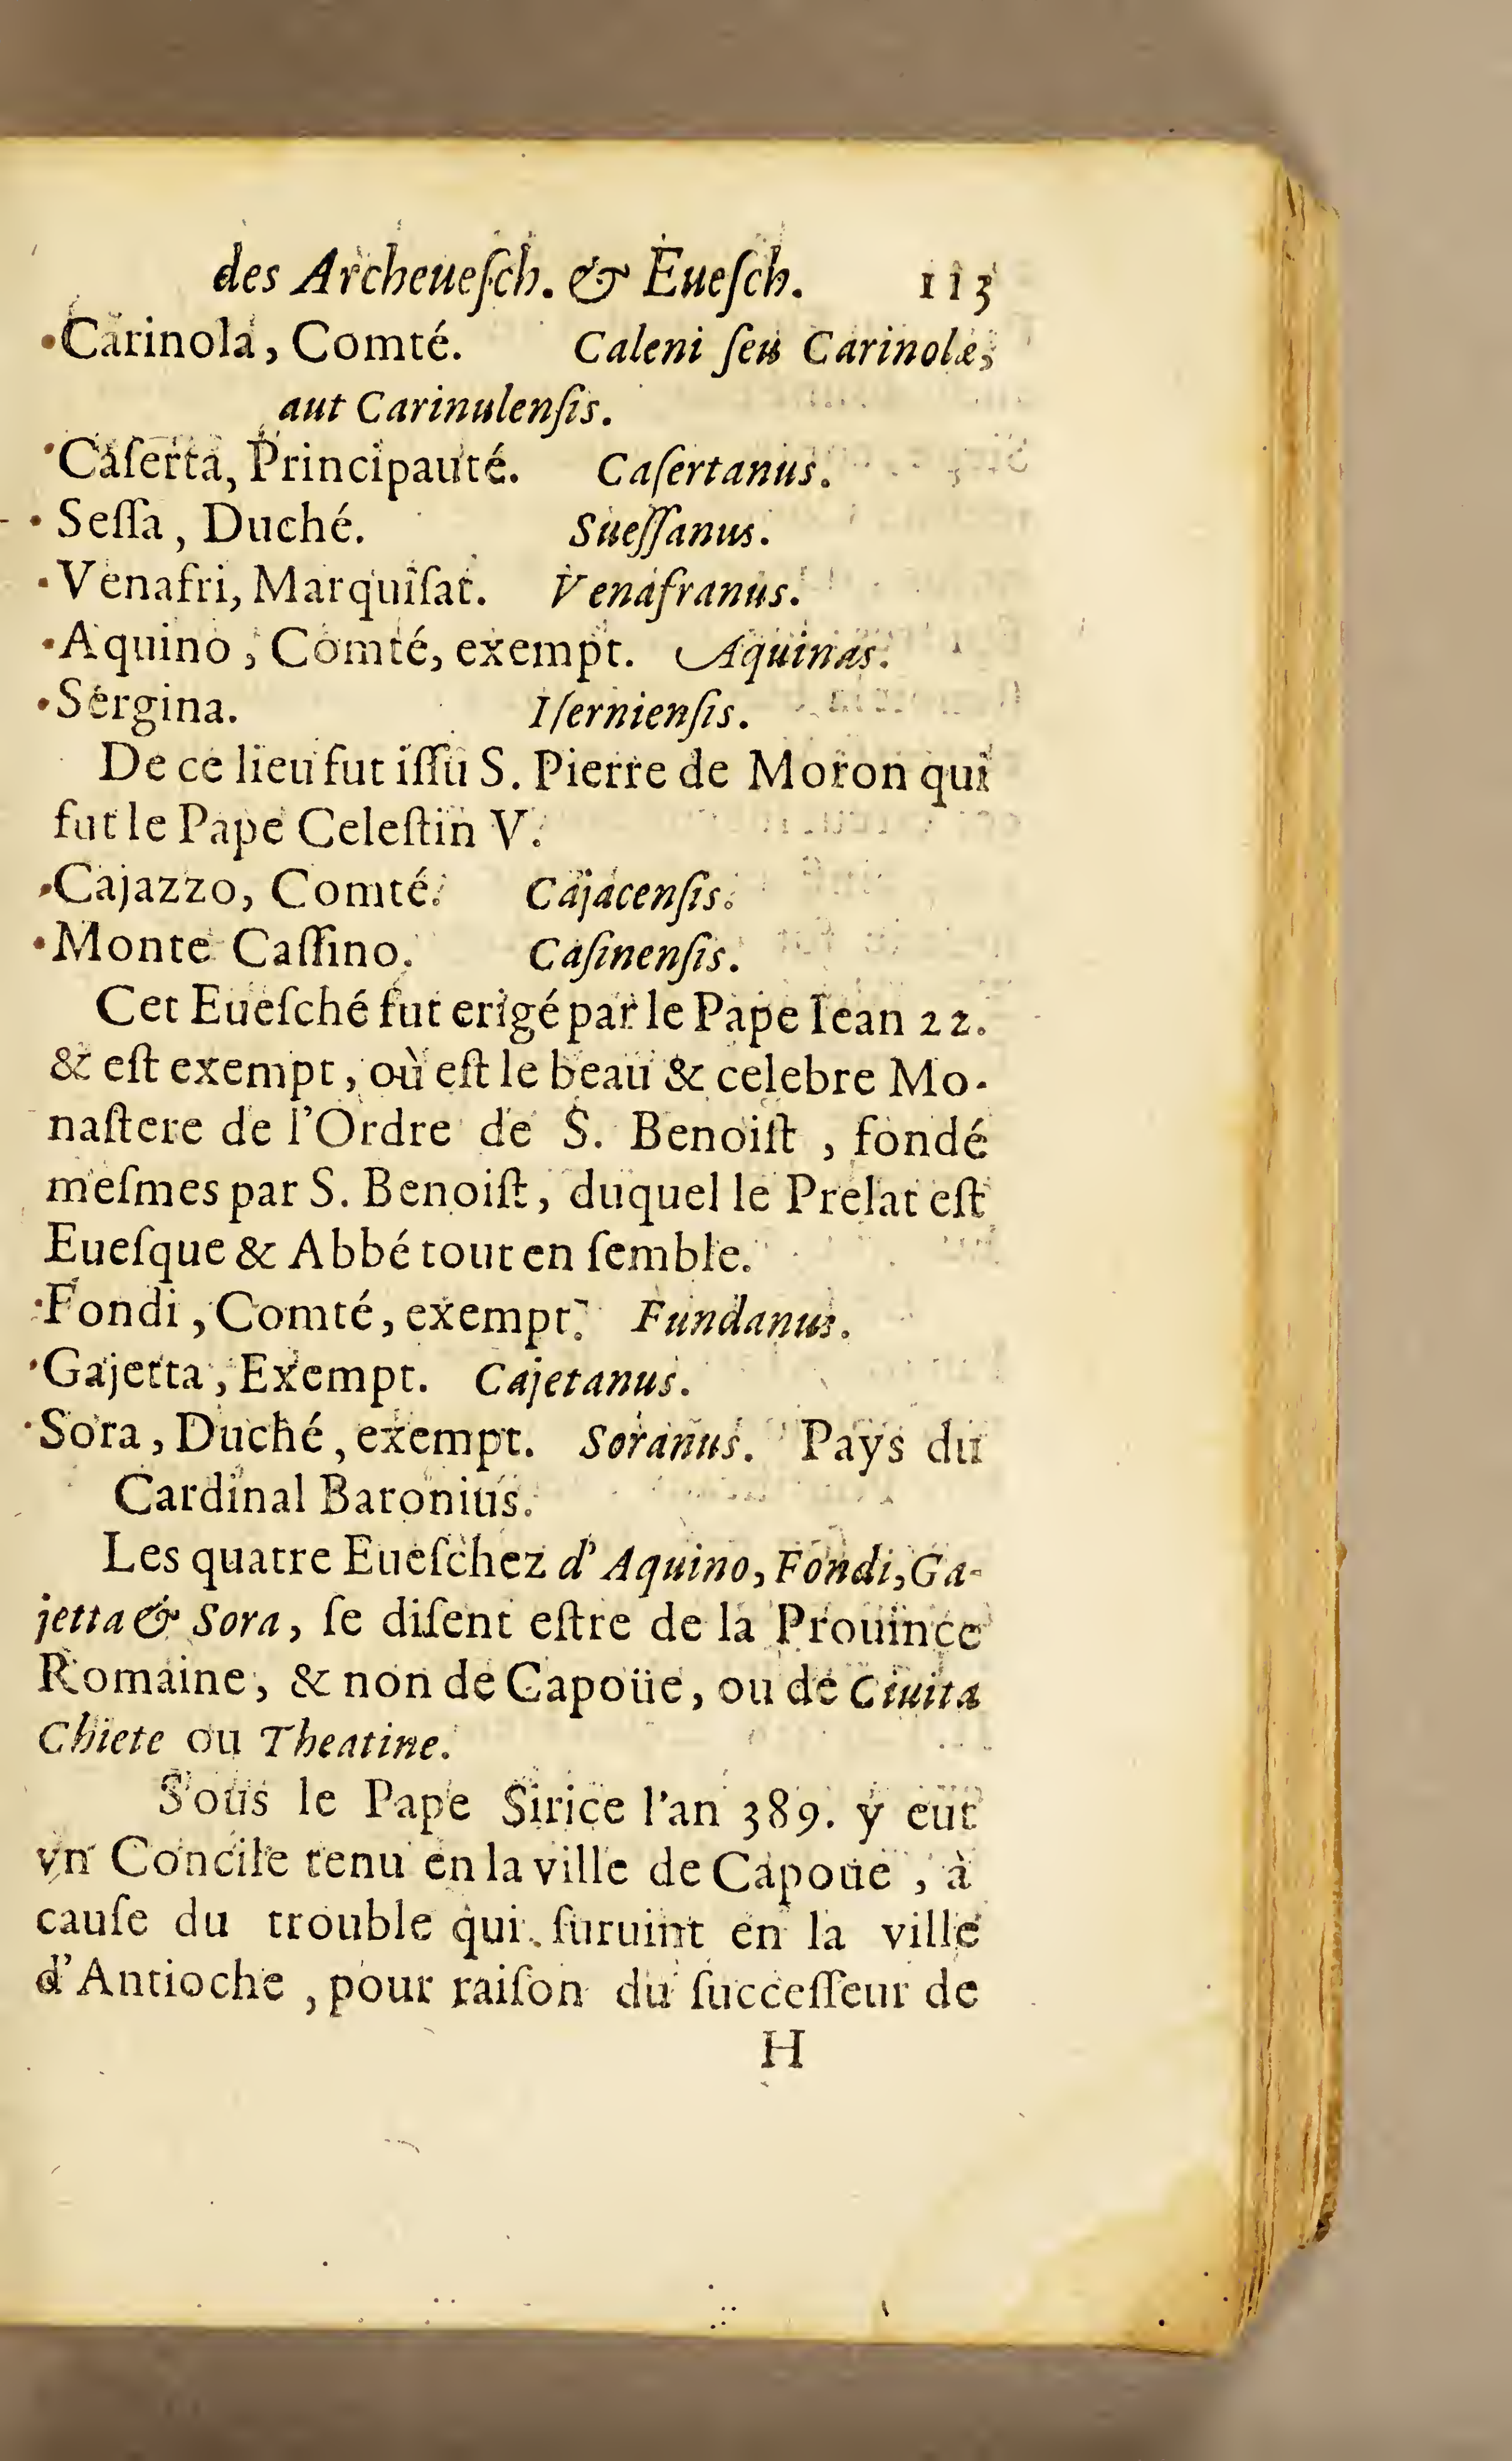 des Archeueſch. & Eueſch. 113
Carinola, Comté. Caleni ſeu Carinolæ,
aut Carinulenſis.
Caſerta, Principauté. Caſertanus.
Seſſa, Duché. Sueſſanus.
Venafri, Marquiſat. Venafranus.
Aquino, Comté, exempt. Aquinas.
Sergina. Iſernienſis.
De ce lieu fut iſſu S. Pierre de Moron qui
fut le Pape Celeſtin V.
Cajazzo, Comté. Cajacenſis.
Monte Caſſino. Caſinenſis.
Cet Eueſché fut erigé par le Pape Iean 22.
& eſt exempt, où eſt le beau & celebre Mo-
naſtere de l'Ordre de S. Benoiſt, fondé
meſmes par S. Benoiſt, duquel le Prelat eſt
Eueſque & Abbé tout en ſemble.
Fondi, Comté, exempt. Fundanus.
Gajetta, Exempt. Cajetanus.
Sora, Duché, exempt. Soranus. Pays du
Cardinal Baronius.
Les quatre Eueſchez d'Aquino, Fondi, Ga-
jetta & Sora, ſe diſent eſtre de la Prouince
Romaine, & non de Capoüe, ou de Ciuita
Chiete ou Theatine.
Sous le Pape Sirice l'an 389. y eut
vn Concile tenu en la ville de Capoüe, à
cauſe du trouble qui ſuruint en la ville
d'Antioche, pour raiſon du ſucceſſeur de
H